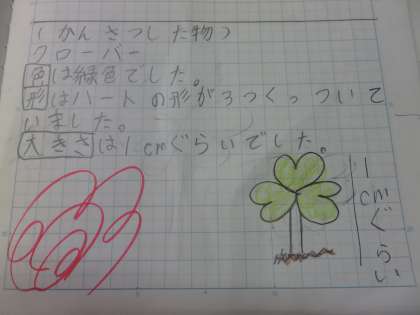 (かんさつした物)
クローバー
色は緑色でした。
形はハートの形が3つくっついて
いました。
大きさは1cmぐらいでした。
1cmぐらい